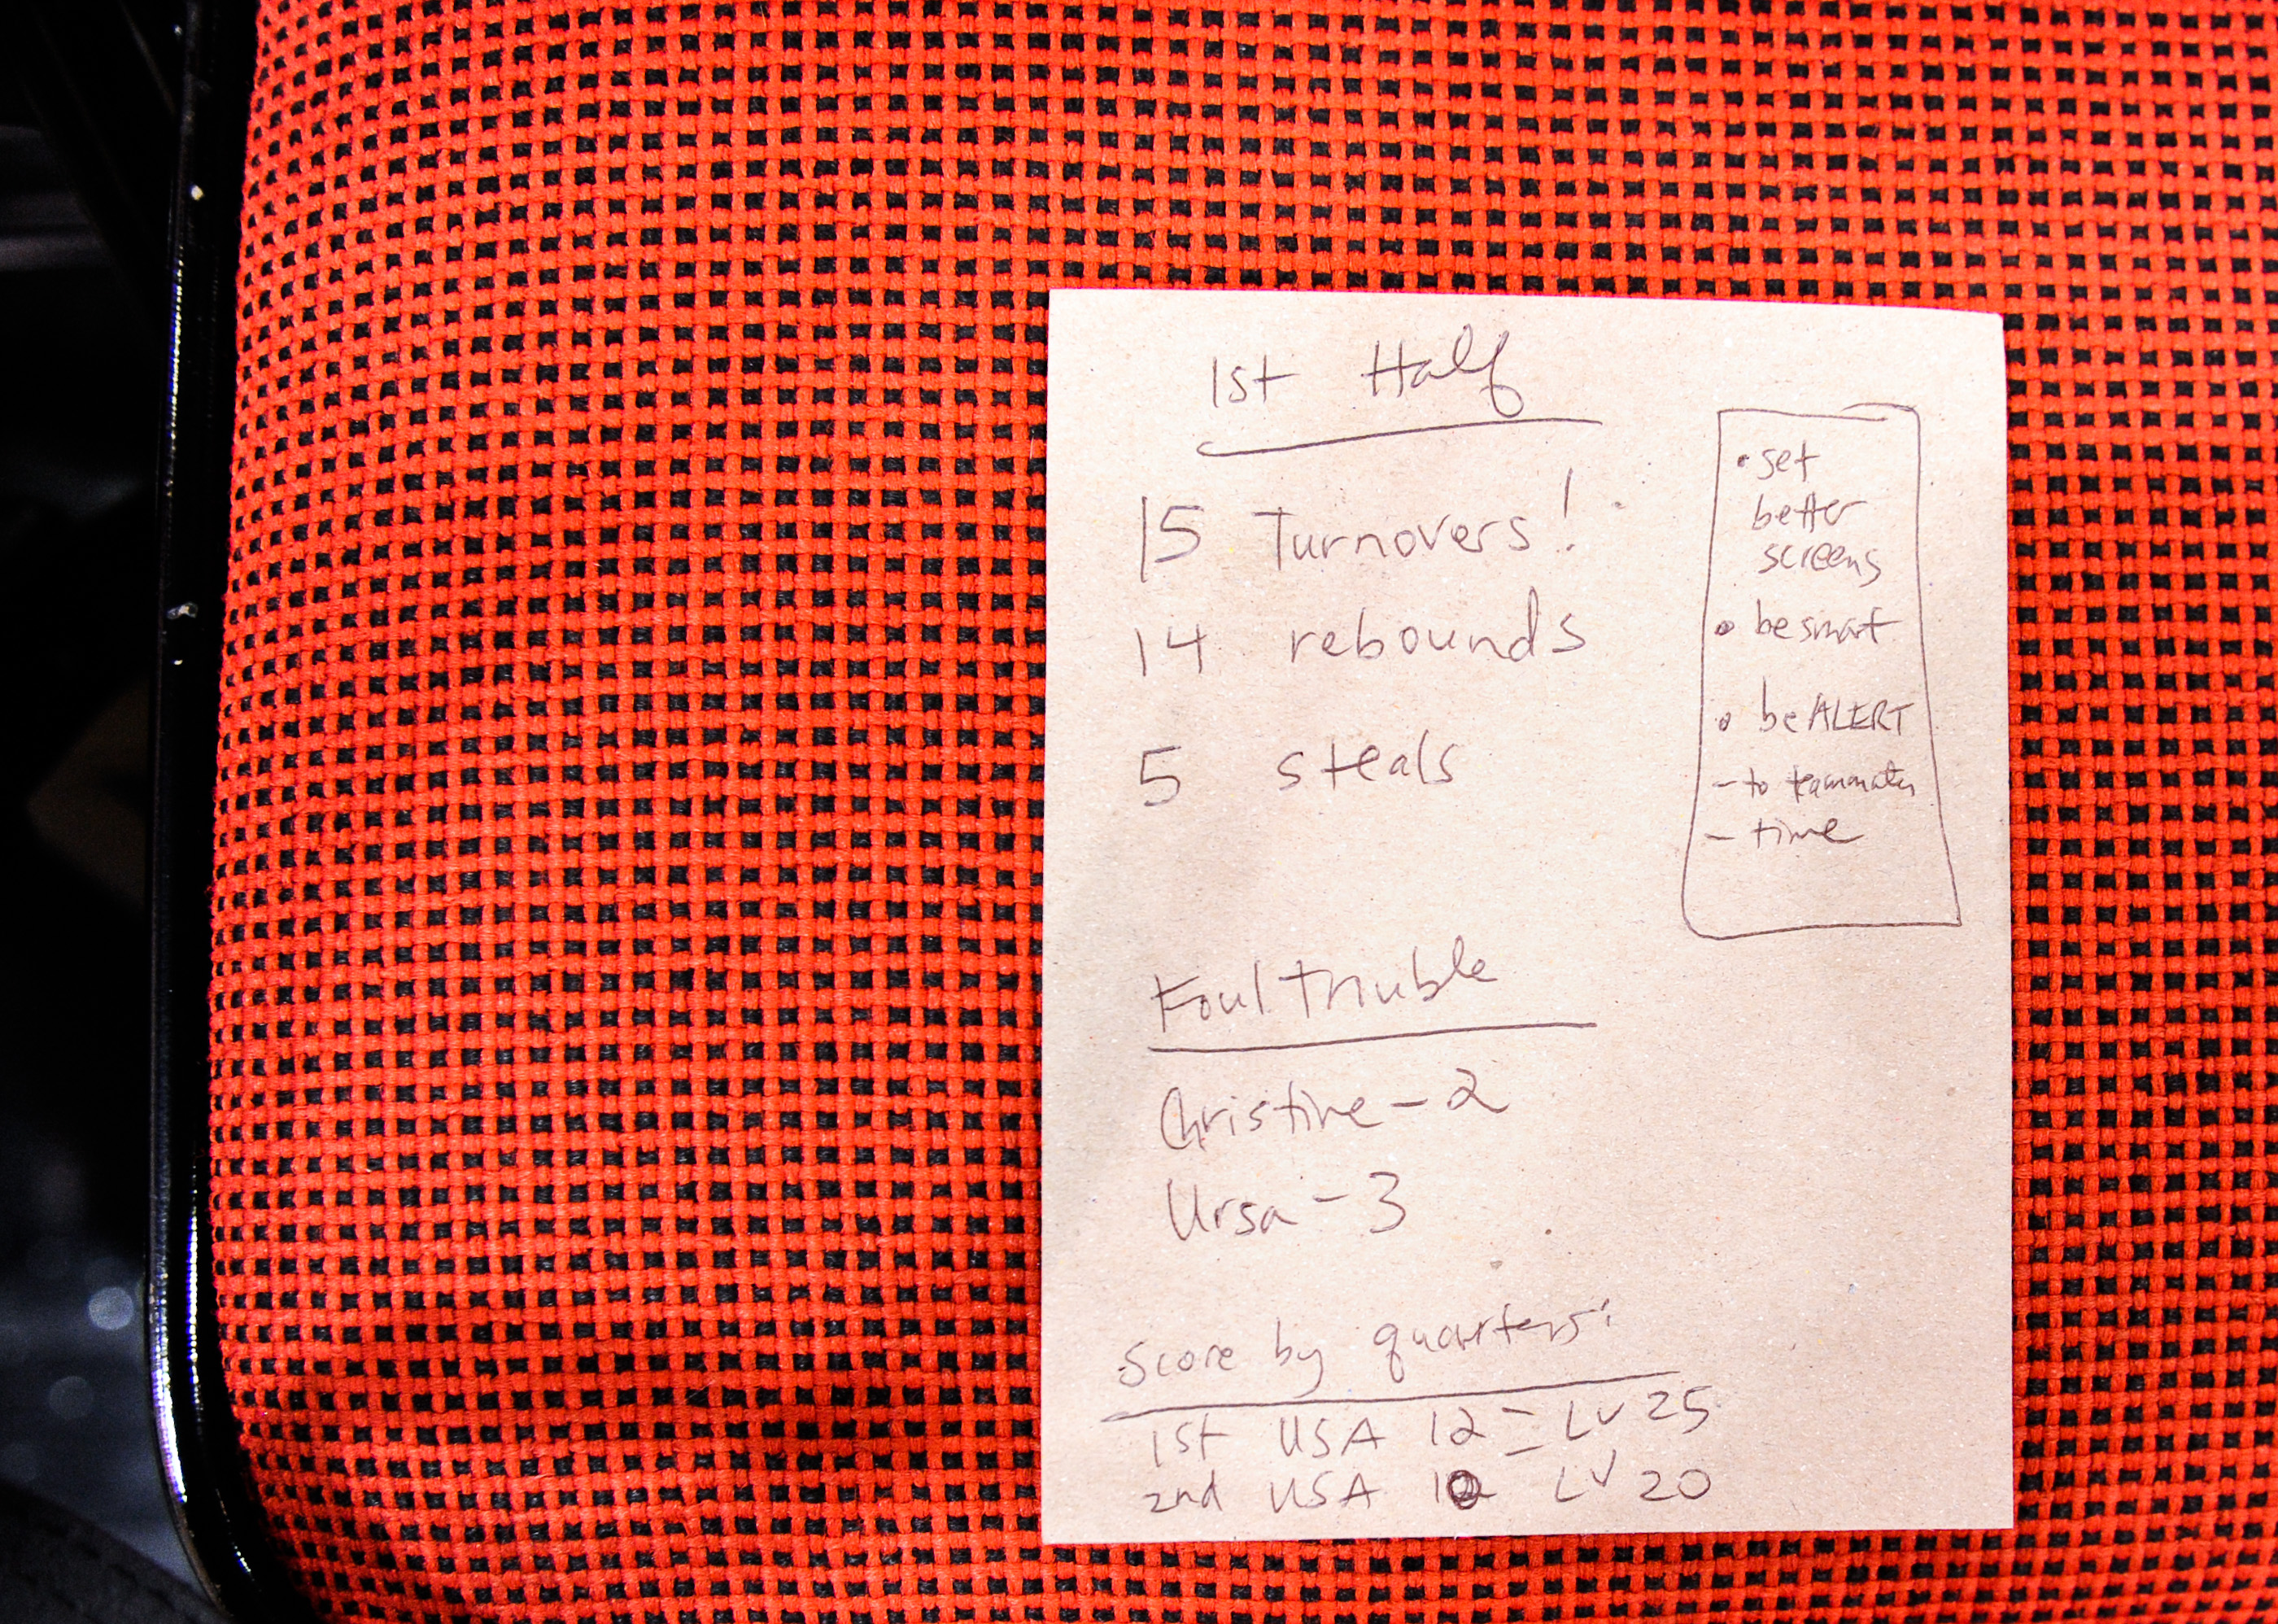 1st Half
15 Turnovers!
14 rebounds
5 steals
• set
better
screens
• be smart
• be ALERT
- to teammates
- time
Foul trouble
Christine - 2
Ursa - 3
Score by quarters:
1st USA 12 = LV 25
2nd USA 10 LV 20